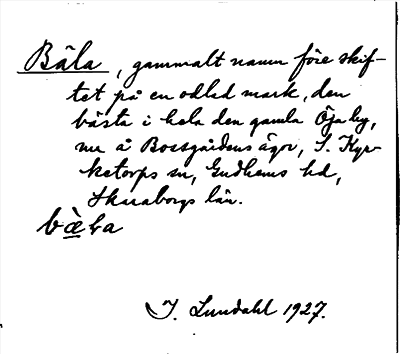 Bäla, gammalt namn före skif-
tet på en odlad mark, den
bästa i hela den gamla Öja by,
nu å Bossgårdens ägor, S. Kyr-
ketorps sn, Gudhems hd,
Skaraborgs län.
bæ̀la
J. Lundahl 1927.